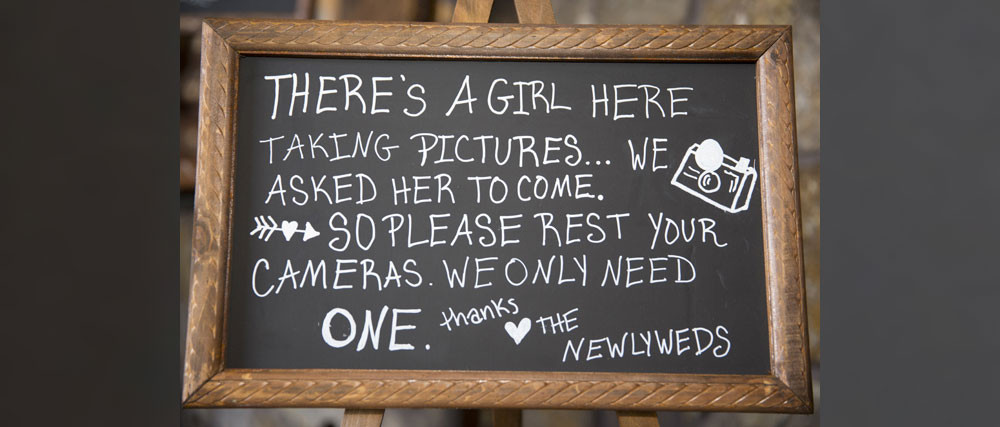 THERE'S A GIRL HERE
TAKING PICTURES... WE
ASKED HER TO COME.
SO PLEASE REST YOUR
CAMERAS. WE ONLY NEED
ONE. thanks THE
NEWLYWEDS